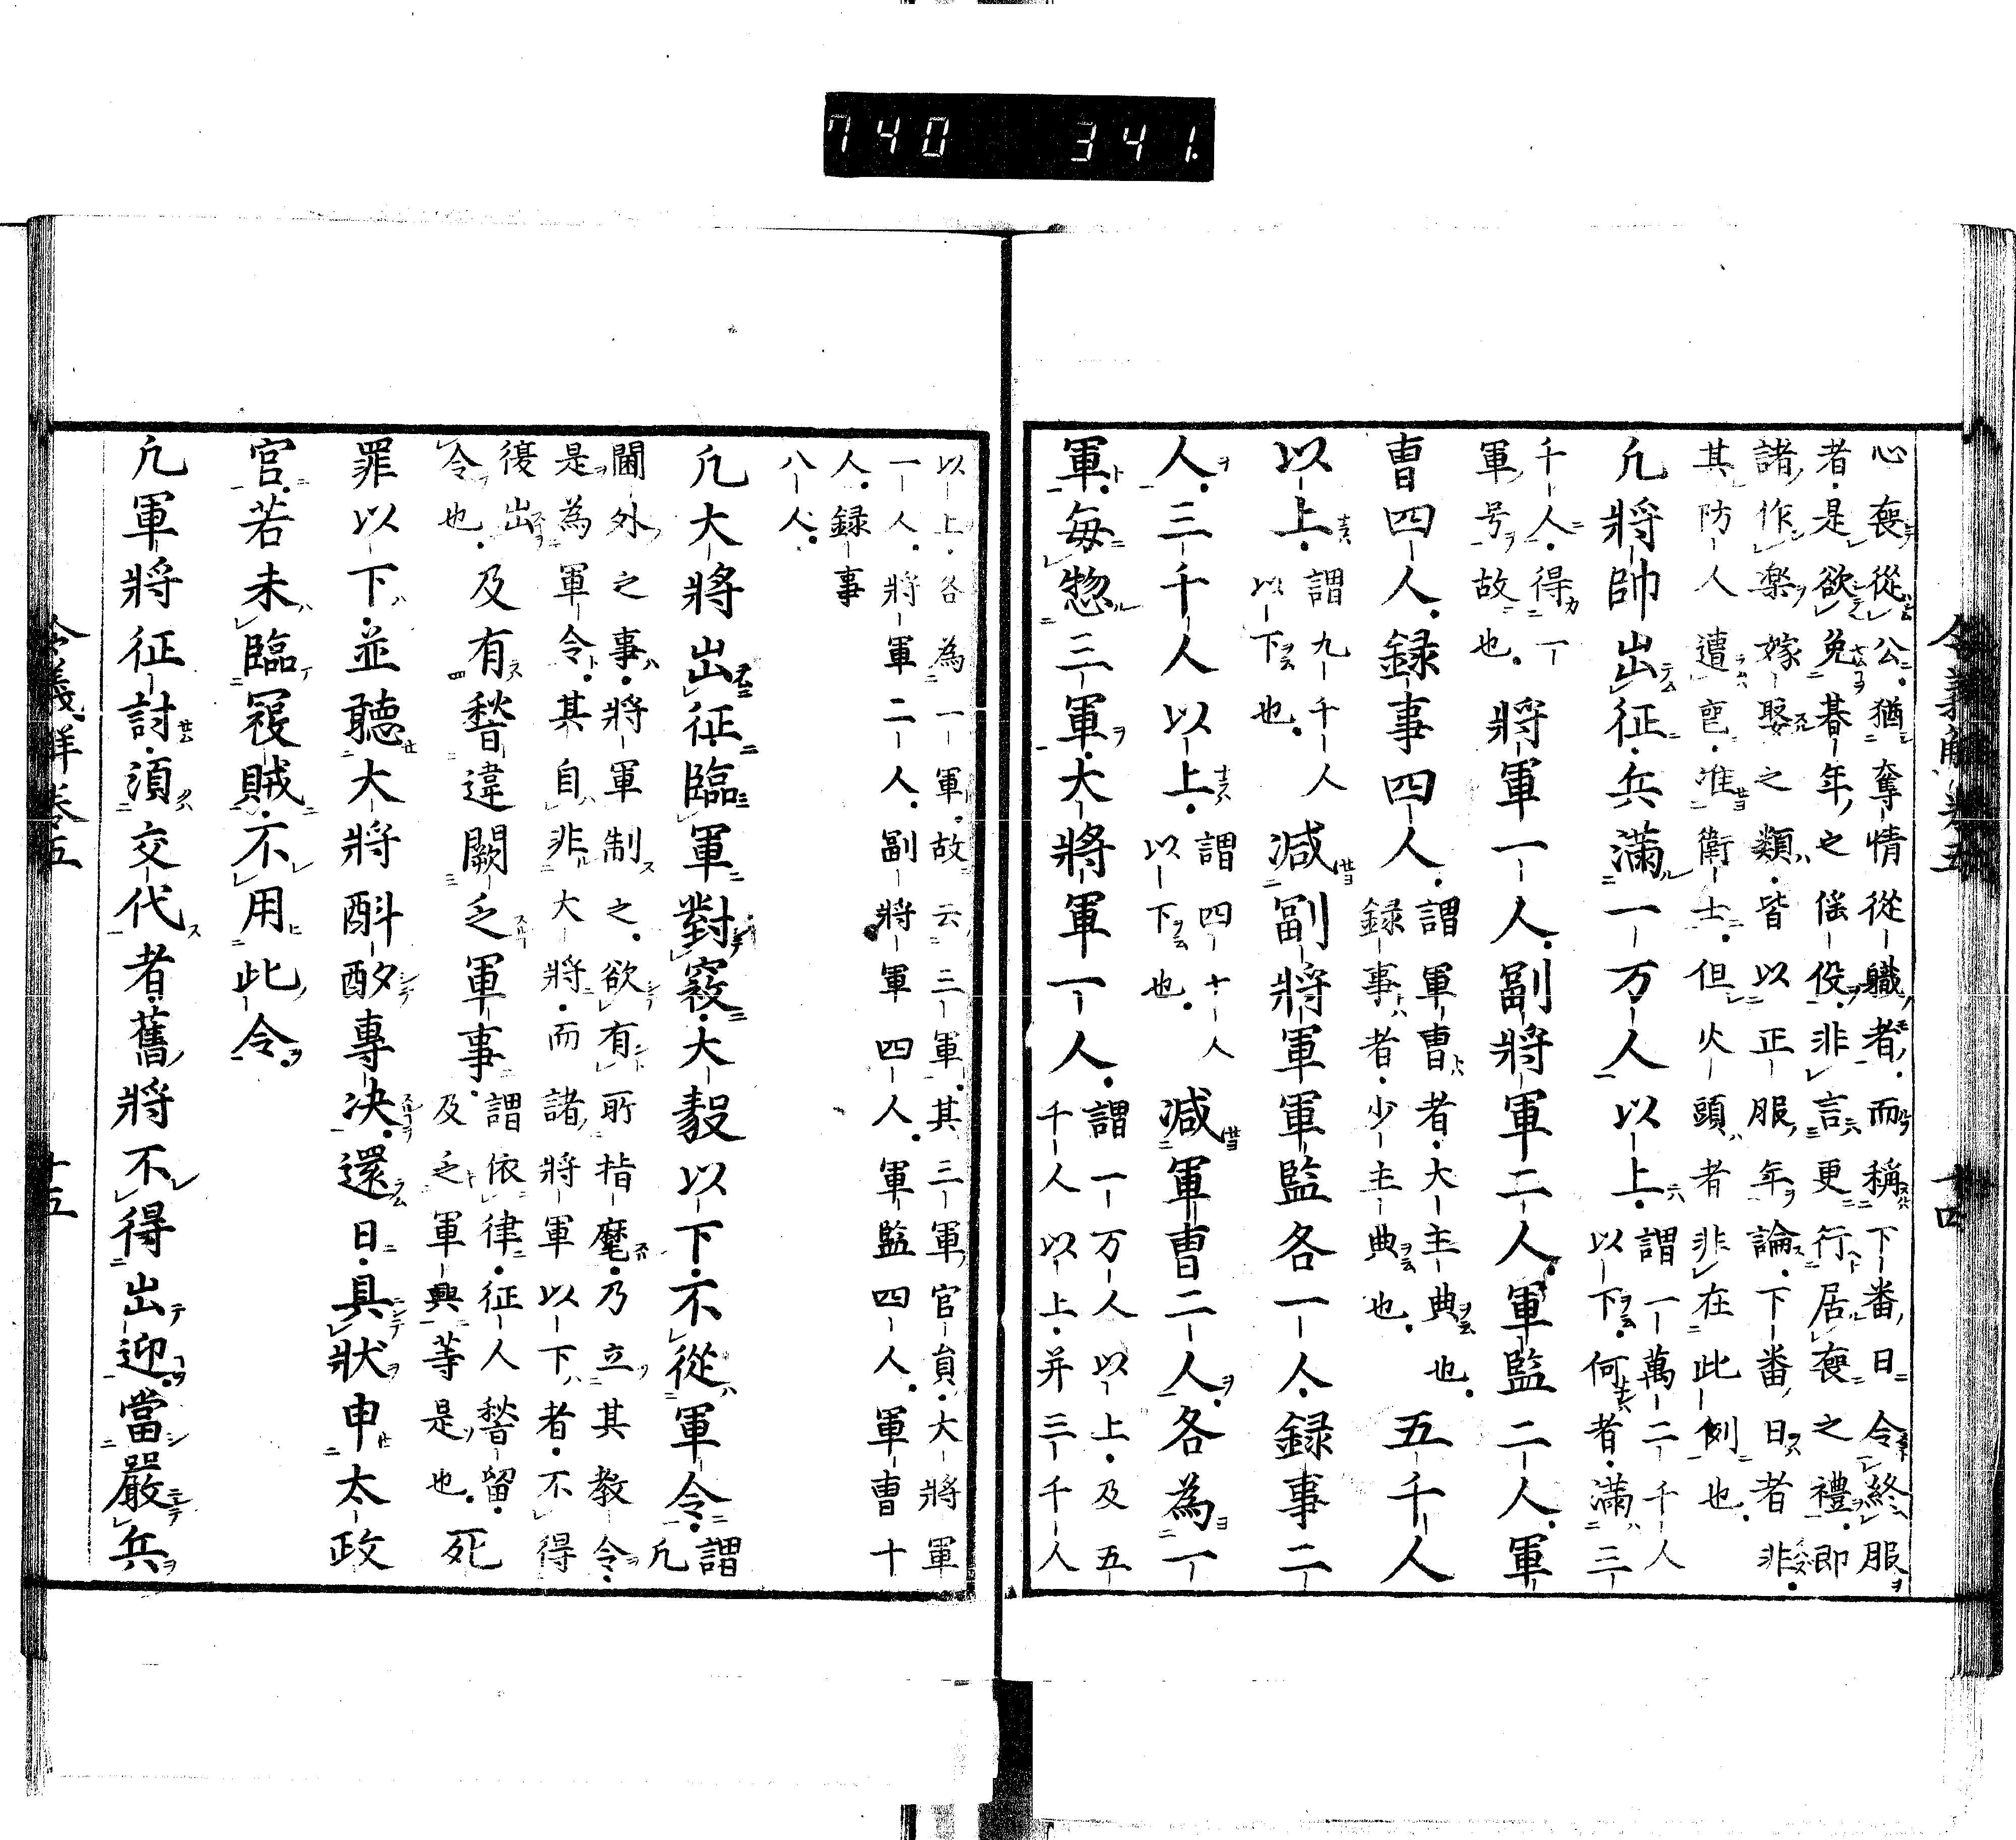 740 341.
令義解 卷五 十四
心喪從公猶奪情從職者而稱下番日令終服
者是欲免朞年之徭役非言更行居喪之禮即
諸作樂嫁娶之類皆以正服年論下番日者非
其防人遭喪准衛士但火頭者非在此例也
凢將帥出征兵滿一万人以上謂一萬二千人
以下何者滿三
千人得一
軍号故也將軍一人副將軍二人軍監二人軍
曹四人録事四人謂軍曹者大主典也
録事者少主典也五千人
以上謂九千人
以下也减副將軍軍監各一人録事二
人三千人以上謂四十人
以下也减軍曹二人各為一
軍毎惣三軍大將軍一人謂一万人以上及五
千人以上并三千人
以上各為一軍故云三軍其三軍官貟大將軍
一人將軍二人副將軍四人軍監四人軍曹十
人録事
八人
凢大將出征臨軍對寇大毅以下不從軍令謂
凢
閫外之事將軍制之欲有所指麾乃立其教令
是為軍令其自非大將而諸將軍以下者不得
復出
令也及有稽違闕乏軍事謂依律征人稽留
及乏軍興等是也死
罪以下並聽大將斟酌專决還日具狀申太政
官若未臨寇賊不用此令
凢軍將征討湏交代者舊將不得出迎當嚴兵
令義解 卷五 十五